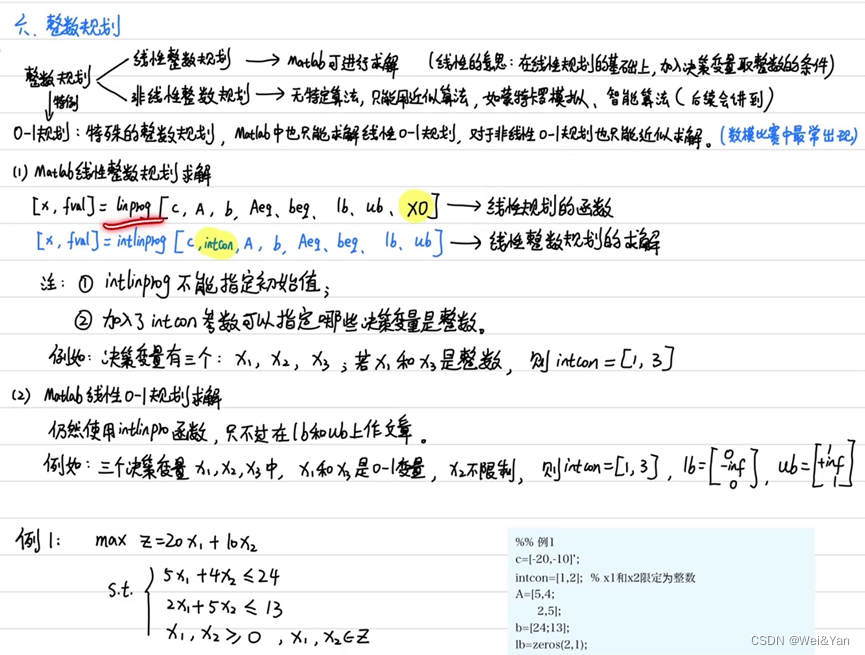 六、整数规划
整数规划
特例
线性整数规划 → Matlab可进行求解 (线性的意思：在线性规划的基础上，加入决策变量取整数的条件)
非线性整数规划 → 无特定算法，只能用近似算法，如蒙特卡罗模拟、智能算法（后续会讲到）
0-1规划：特殊的整数规划，Matlab中也只能求解线性0-1规划，对于非线性0-1规划也只能近似求解。(数模比赛中最常出现)
(1) Matlab线性整数规划求解
[x, fval]= linprog [c, A, b, Aeq、beq、 lb、ub、 X0] → 线性规划的函数
[x, fval]= intlinprog [c, intcon, A, b, Aeq、beq、 lb、ub] → 线性整数规划的求解
注：① intlinprog 不能指定初始值；
② 加入了intcon参数可以指定哪些决策变量是整数。
例如：决策变量有三个：x₁, x₂, x₃；若x₁和x₃是整数，则intcon=[1, 3]
(2) Matlab线性0-1规划求解
仍然使用intlinpro函数，只不过在lb和ub上作文章。
例如：三个决策变量x₁,x₂,x₃中，x₁和x₃是0-1变量，x₂不限制，则intcon=[1, 3]，lb=[0 -inf 0]，ub=[1 +inf 1]
例1: max z=20x₁+10x₂
s.t. { 5x₁+4x₂≤24
2x₁+5x₂≤13
x₁, x₂≥0 , x₁, x₂∈Z
%% 例1
c=[-20,-10]';
intcon=[1,2]; % x1和x2限定为整数
A=[5,4;
2,5];
b=[24;13];
lb=zeros(2,1);
CSDN @Wei&Yan